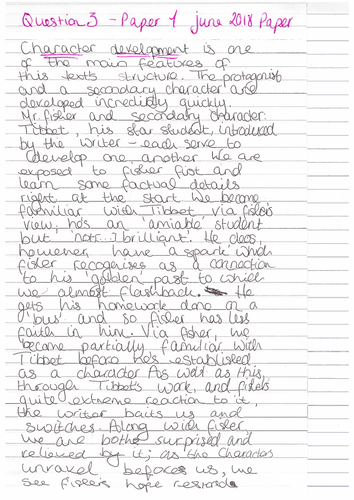 Question 3 - Paper 1 june 2018 Paper
Character development is one
of the main features of
this text's structure. The protagonist
and a secondary character are
developed incredibly quickly.
Mr. fisher and secondary character
Tibbet, his star student, introduced
by the writer - each serve to
develop one another. We are
exposed to fisher first and
learn some factual details
right at the start. We become
familiar with Tibbet via fisher's
view, he's an 'amiable' student
but 'not [...] brilliant'. He does,
however, have a 'spark' which
fisher recognises as a connection
to his 'golden past' to which
we almost flashback. He
gets his homework done on a
'bus' and so fisher has less
faith in him. Via fisher, we
become partially familiar with
Tibbet before he's established
as a character. As well as this,
through Tibbet's work, and fisher's
quite extreme reaction to it,
the writer baits us and
switches. Along with fisher
we are both surprised and
relieved by it; as the characters
unravel before us, we
see fisher's hope